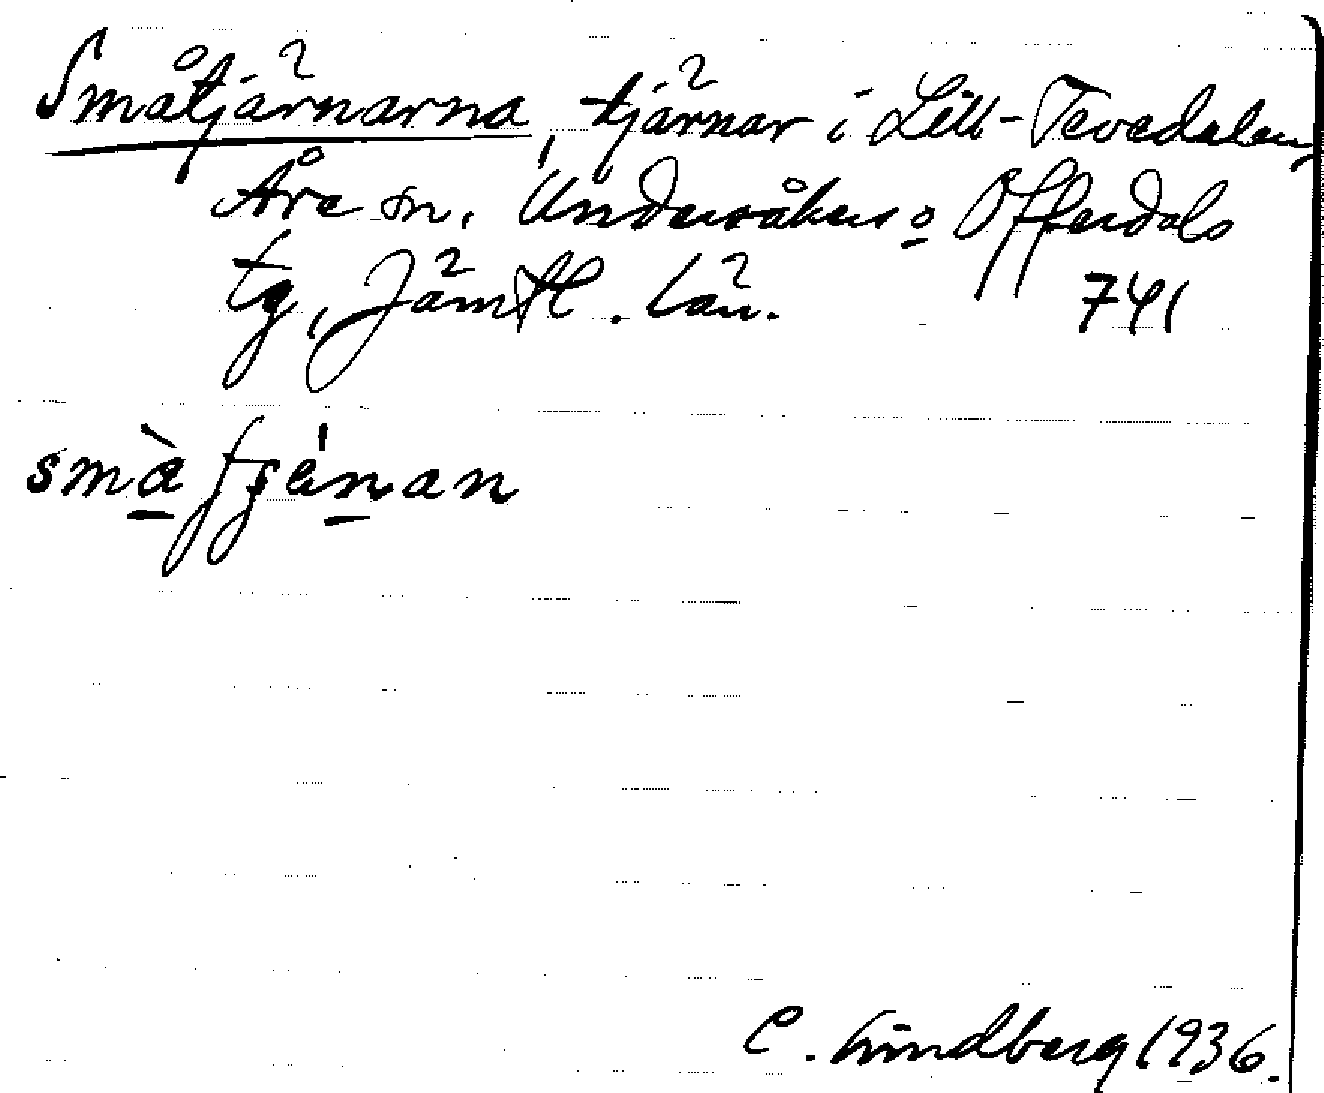 Småtjärnarna, tjärnar i Lill-Tevedalen,
Åre sn. Undersåkers o Offerdals
tg, Jämtl. län. 741
C. Lindberg 1936.